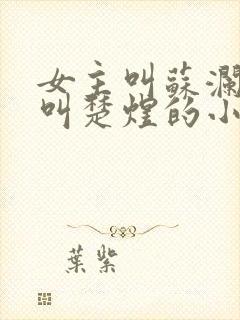 女主叫蘇瀾
叫楚煌的小
葉紫